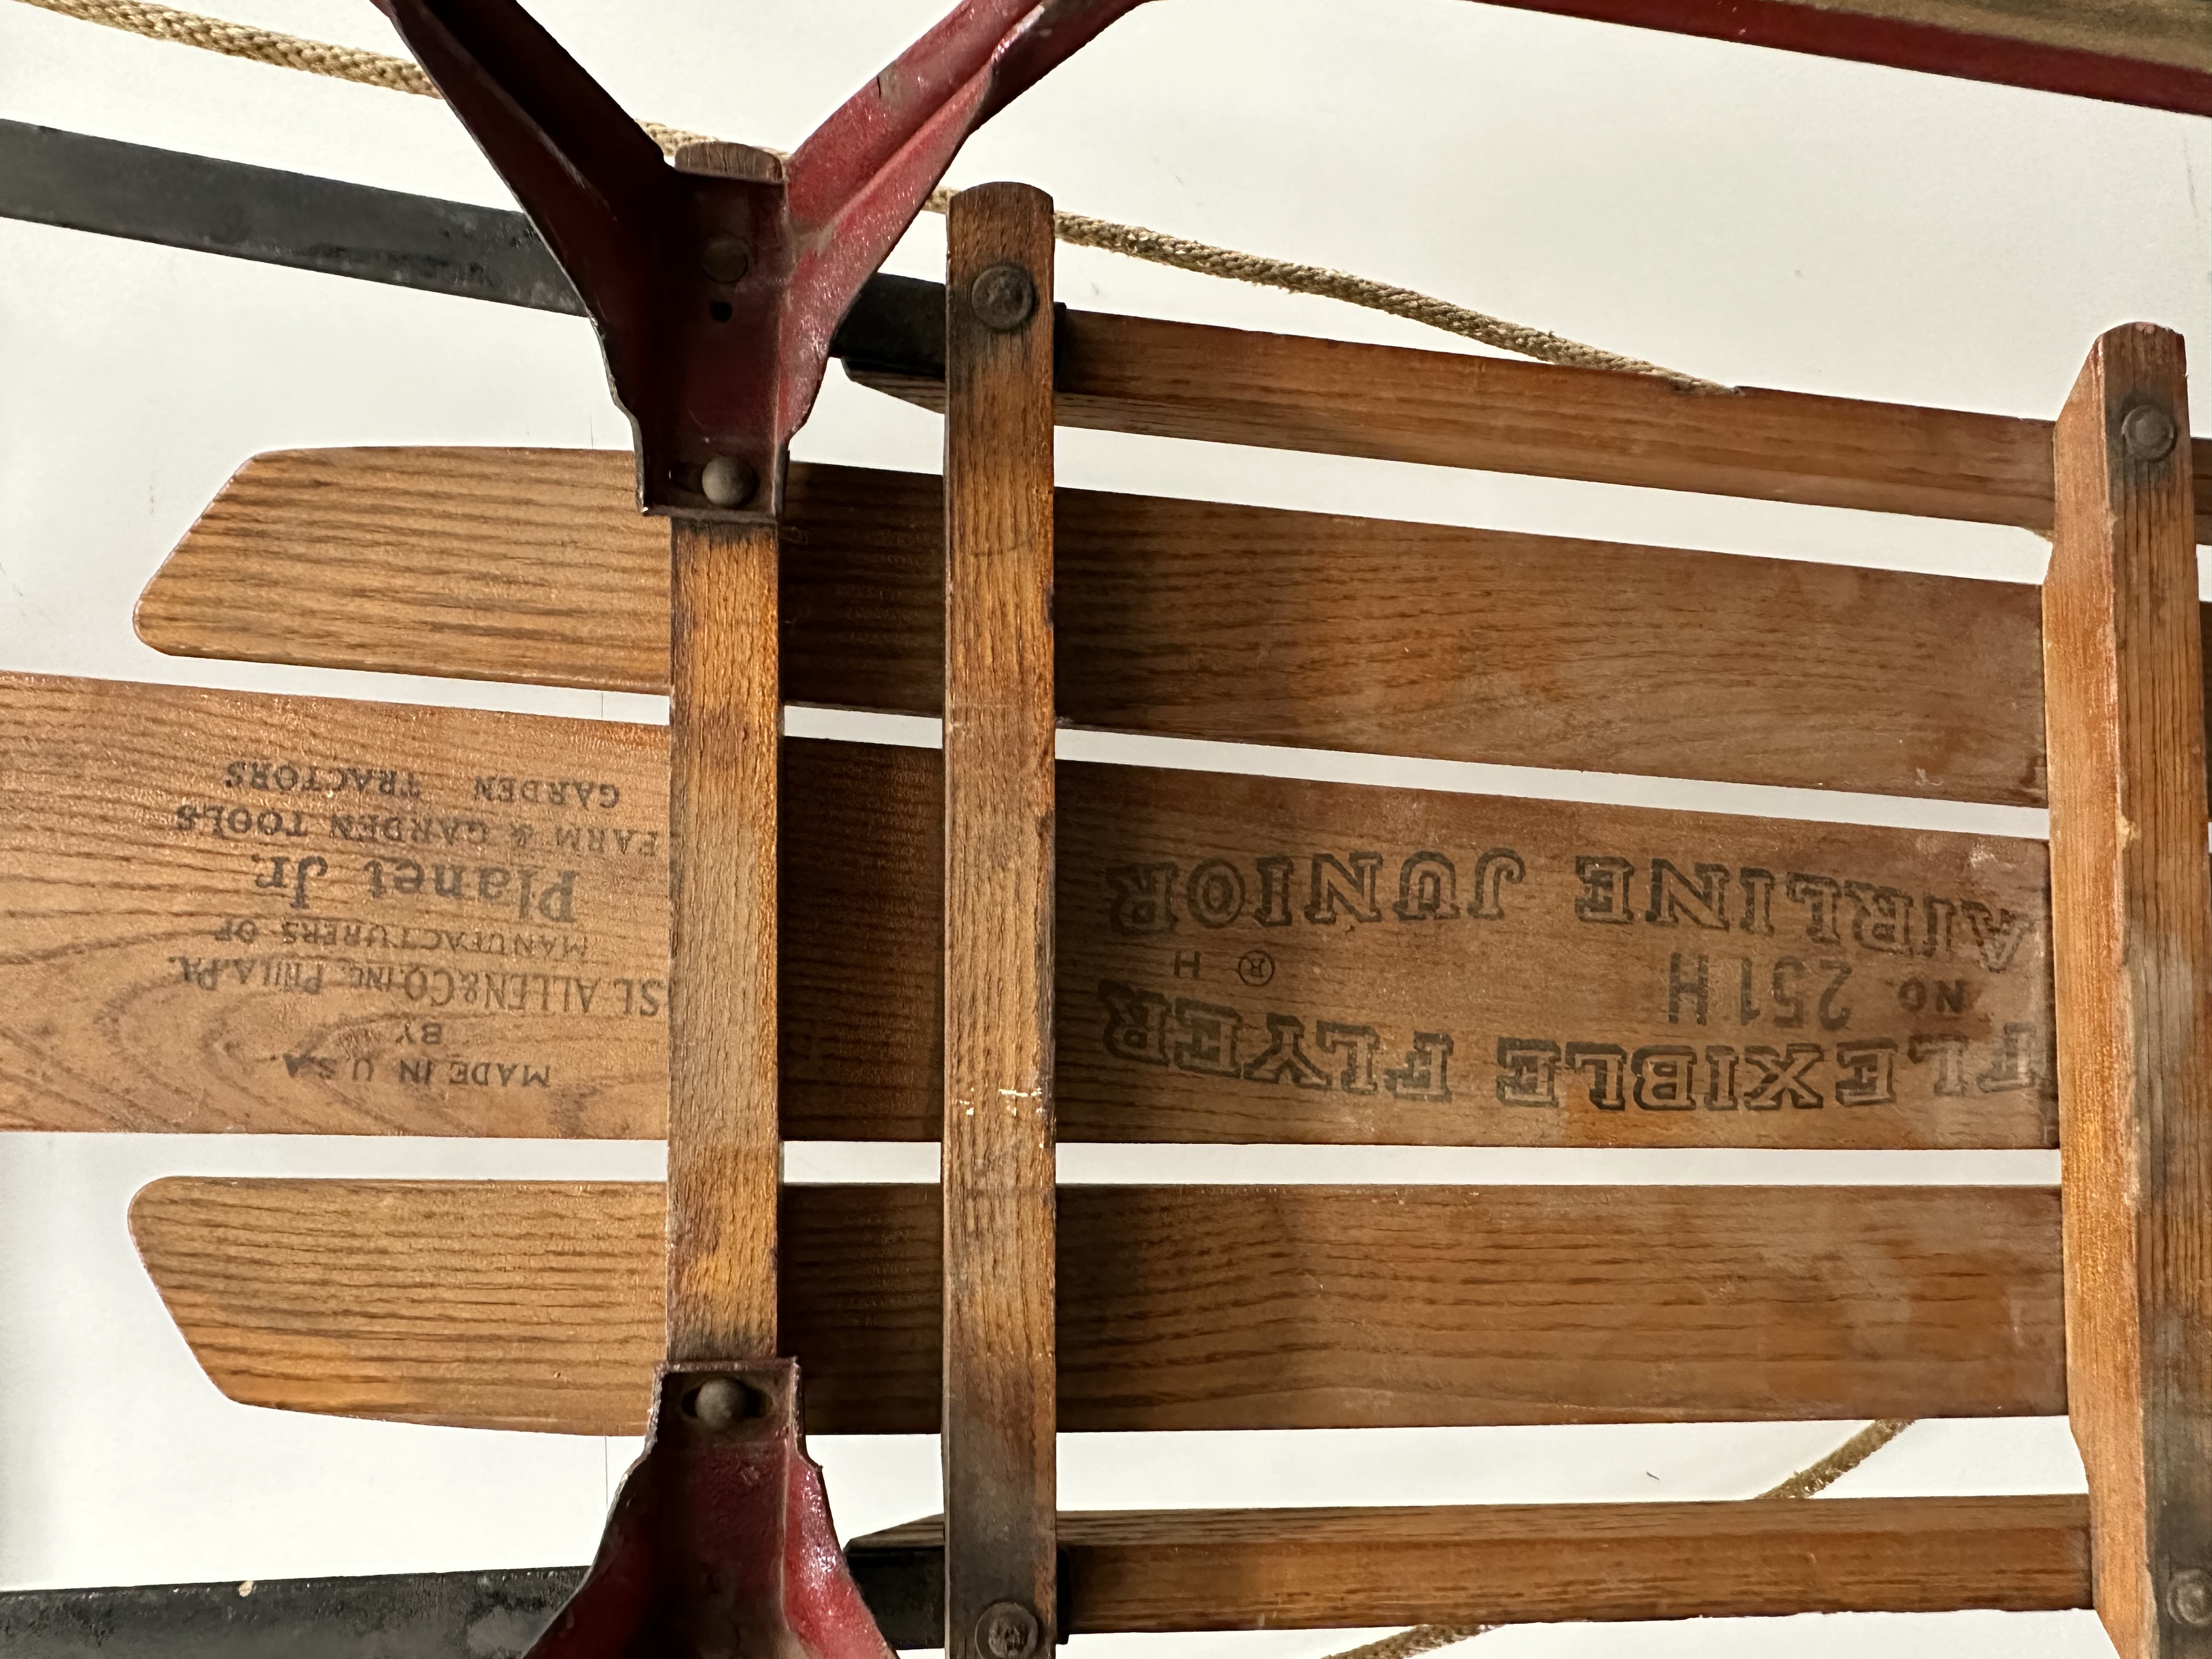 MADE IN U.S.A.
BY
S.L. ALLEN & CO. INC. PHILA. PA.
MANUFACTURERS OF
Planet Jr.
FARM & GARDEN TOOLS
GARDEN TRACTORS
FLEXIBLE FLYER
NO 251H
® H
AIRLINE JUNIOR